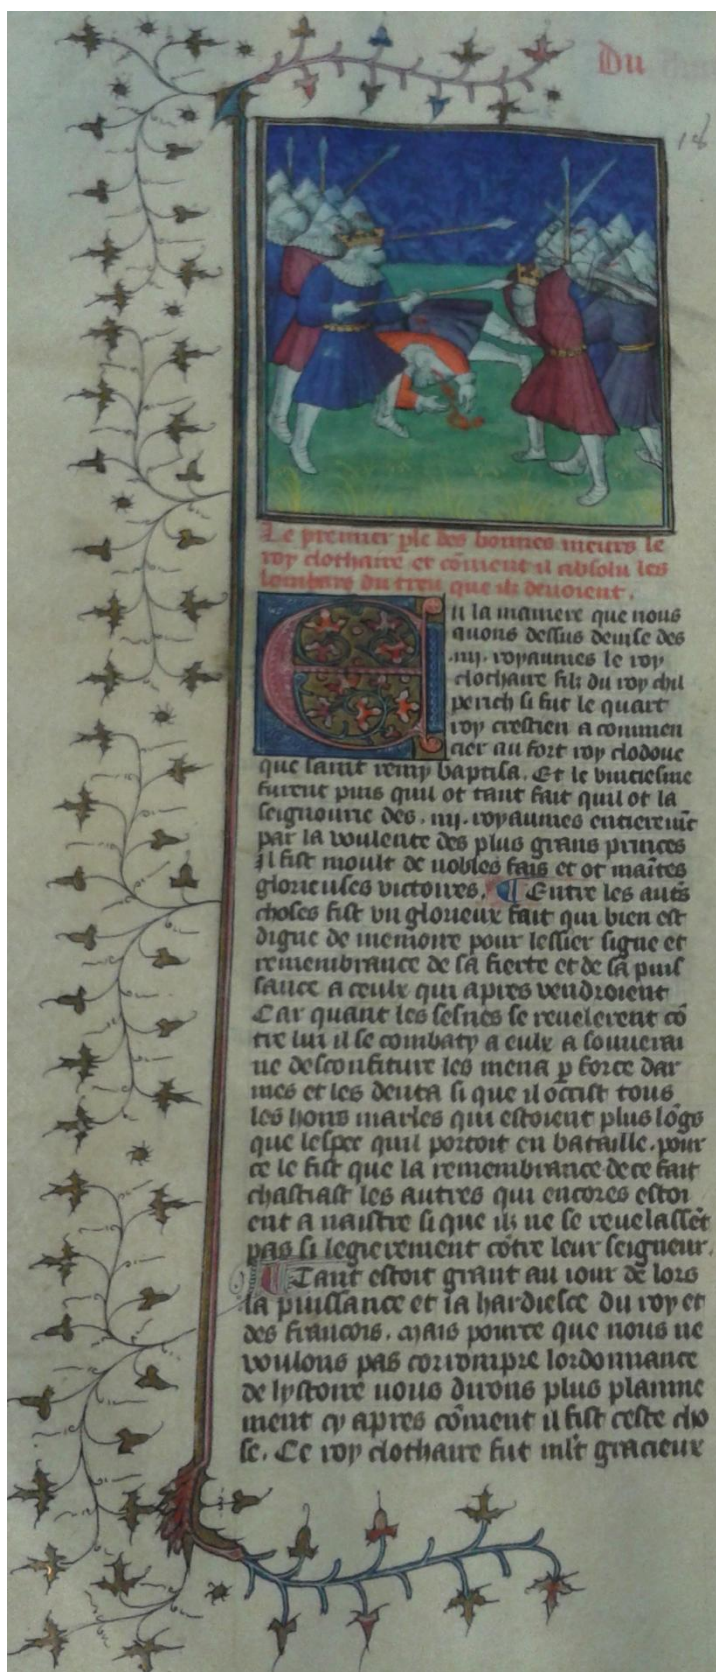 Du
18
Le premier ple des bonnes meurs le
roy clothaire et cōment il absolu les
lombars du treu que ilz devoient.
En la maniere que nous
auons dessus deuise des
.iiij. royaumes le roy
clothaire filz du roy chil
perich si fut le quart
roy crestien a commen
cier au fort roy clodoue
que saint remy baptisa. Et le vintiesme
furent puis quil ot tant fait quil ot la
seignourie des .iiij. royaumes entieremēt
par la voulente des plus grans princes
Il fist moult de nobles fais et ot maītes
glorieuses victoires. Entre les autͤs
choses fist vn glorieux fait qui bien est
digne de memoire pour lessier signe et
remembrance de sa fierte et de sa puis
sance a ceulx qui apres vendroient
Car quant les sesnes se reuelerent cō
tre lui il se combaty a eulx a souuerai
ne desconfiture les mena ꝑ force dar
mes et les donta si que il occist tous
les hons masles qui estoient plus lōgs
que lespee quil portoit en bataille. pour
ce le fist que la remembrance de ce fait
chastiast les autres qui encores estoi
ent a naistre si que ilz ne se reuelassēt
pas si legierement cōtre leur seigneur.
Tant estoit grant au iour de lors
la puissance et la hardiesce du roy et
des francois. Mais pource que nous ne
voulons pas corrompre lordonnance
de lystoire nous dirons plus plaine
ment cy apres cōment il fist ceste cho
se. Ce roy clothaire fut mlt gracieux